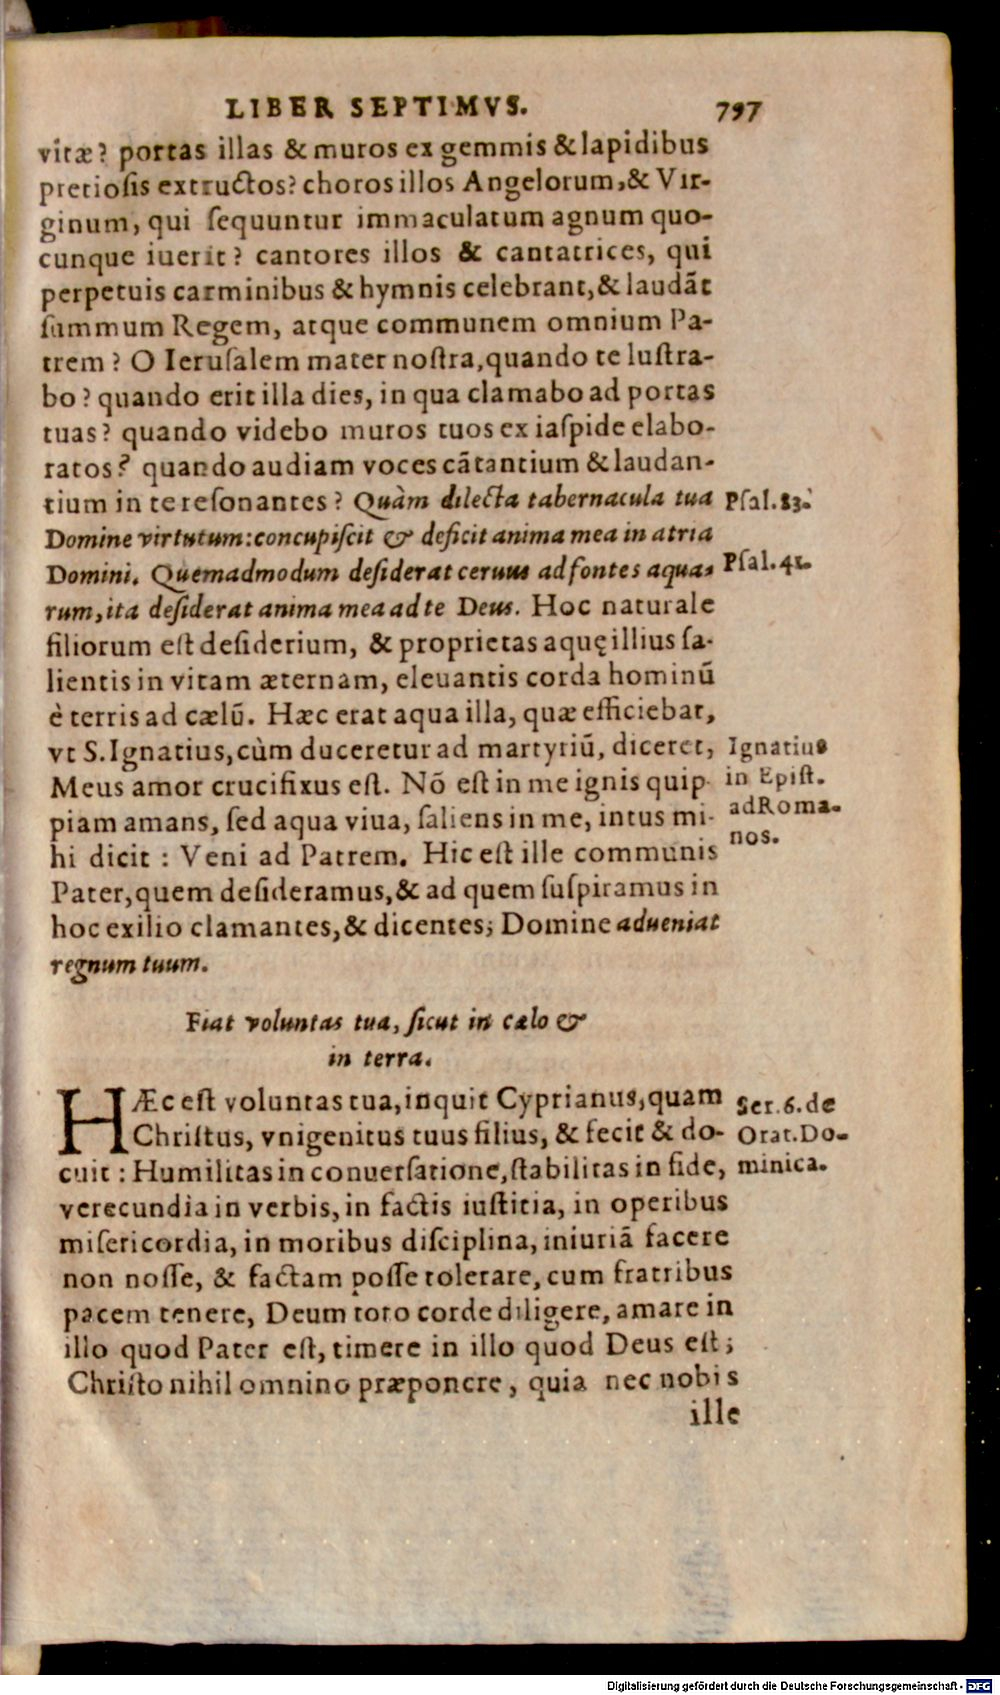 LIBER SEPTIMVS. 797
vitæ? portas illas & muros ex gemmis & lapidibus
pretiosis extructos? choros illos Angelorum, & Vir-
ginum, qui ſequuntur immaculatum agnum quo-
cunque iuerit? cantores illos & cantatrices, qui
perpetuis carminibus & hymnis celebrant, & laudãt
ſummum Regem, atque communem omnium Pa-
trem? O Ieruſalem mater noſtra, quando te luſtra-
bo? quando erit illa dies, in qua clamabo ad portas
tuas? quando videbo muros tuos ex iaſpide elabo-
ratos? quando audiam voces cãtantium & laudan-
tium in te reſonantes? Quàm dilecta tabernacula tua
Psal.83.
Domine virtutum: concupiſcit & deficit anima mea in atria
Domini. Quemadmodum deſiderat ceruus ad fontes aqua-
Pſal.41.
rum, ita deſiderat anima mea ad te Deus. Hoc naturale
filiorum eſt deſiderium, & proprietas aquę illius ſa-
lientis in vitam æternam, eleuantis corda hominũ
è terris ad cælũ. Hæc erat aqua illa, quæ efficiebat,
vt S. Ignatius, cùm duceretur ad martyriũ, diceret,
Ignatius
Meus amor crucifixus eſt. Nõ eſt in me ignis quip-
in Epiſt.
piam amans, ſed aqua viua, ſaliens in me, intus mi-
ad Roma-
hi dicit: Veni ad Patrem. Hic eſt ille communis
nos.
Pater, quem deſideramus, & ad quem ſuſpiramus in
hoc exilio clamantes, & dicentes; Domine adueniat
regnum tuum.
Fiat voluntas tua, ſicut in cælo &
in terra.
HÆc eſt voluntas tua, inquit Cyprianus, quam
Ser. 6. de
Chriſtus, vnigenitus tuus filius, & fecit & do-
Orat. Do-
cuit: Humilitas in conuerſatione, ſtabilitas in fide,
minica.
verecundia in verbis, in factis iuſtitia, in operibus
miſericordia, in moribus diſciplina, iniuriã facere
non noſſe, & factam poſſe tolerare, cum fratribus
pacem tenere, Deum toto corde diligere, amare in
illo quod Pater eſt, timere in illo quod Deus eſt;
Chriſto nihil omnino præponere, quia nec nobis
ille
Digitalisierung gefördert durch die Deutsche Forschungsgemeinschaft - DFG